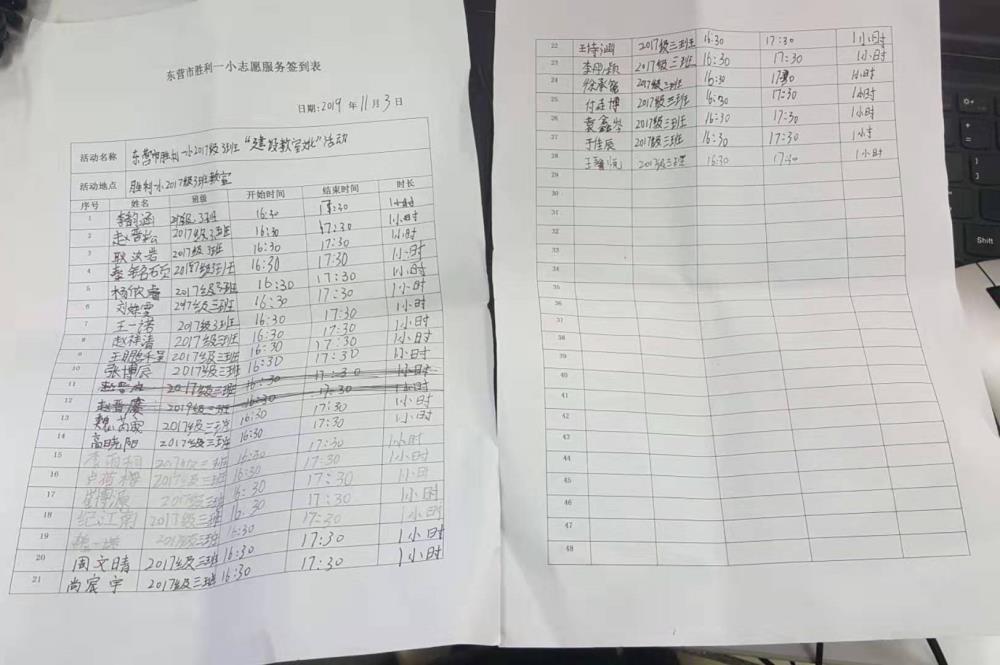 东营市胜利一小志愿服务签到表
日期:2019 年 11 月 3 日
活动名称 东营市胜利一小2017级3班“建设教室文化”活动
活动地点 胜利一小2017级3班教室
序号 姓名 班级 开始时间 结束时间 时长
1 李韵涵 3班 16:30 17:30 1小时
2 赵晋松 2017级3班 16:30 17:30 1小时
3 2017级3班 16:30 17:30 1小时
4 秦铭 2017级3班 16:30 17:30 1小时
5 杨依睿 2017级3班 16:30 17:30 1小时
6 刘 三班 16:30 17:30 1小时
7 王一诺 2017级3班 16:30 17:30 1小时
8 赵梓清 2017级三班 16:30 17:30 1小时
9 王鹏 2017级三班 16:30 17:30 1小时
10 张博辰 2017级三班 16:30 17:30 1小时
11 赵晋 2017级三班 16:30 17:30 1小时
12 赵晋 2019级三班 16:30 17:30 1小时
13 魏 2017级三班 16:30 17:30 1小时
14 高晓阳 2017级三班 16:30 17:30 1小时
15 李雨桐 2017级三班 16:30 17:30 1小时
16 2017级三班 16:30 17:30 1小时
17 崔博源 2017级三班 16:30 17:30 1小时
18 纪江南 2017级三班 16:30 17:30 1小时
19 2017级三班 16:30 17:30 1小时
20 周文晴 2017级三班 16:30 17:30 1小时
21 尚宸宇 2017级三班 16:30 17:30 1小时
22 王诗涵 2017级三班 16:30 17:30 1小时
23 李 颖 2017级三班 16:30 17:30 1小时
24 徐承 2017级三班 16:30 17:30 1小时
25 付 博 2017级三班 16:30 17:30 1小时
26 袁鑫岑 2017级三班 16:30 17:30 1小时
27 于佳辰 2017级三班 16:30 17:30 1小时
28 王 2017级三班 16:30 1小时
29
30
31
32
33
34
35
36
37
38
39
40
41
42
43
44
45
46
47
48
Shift